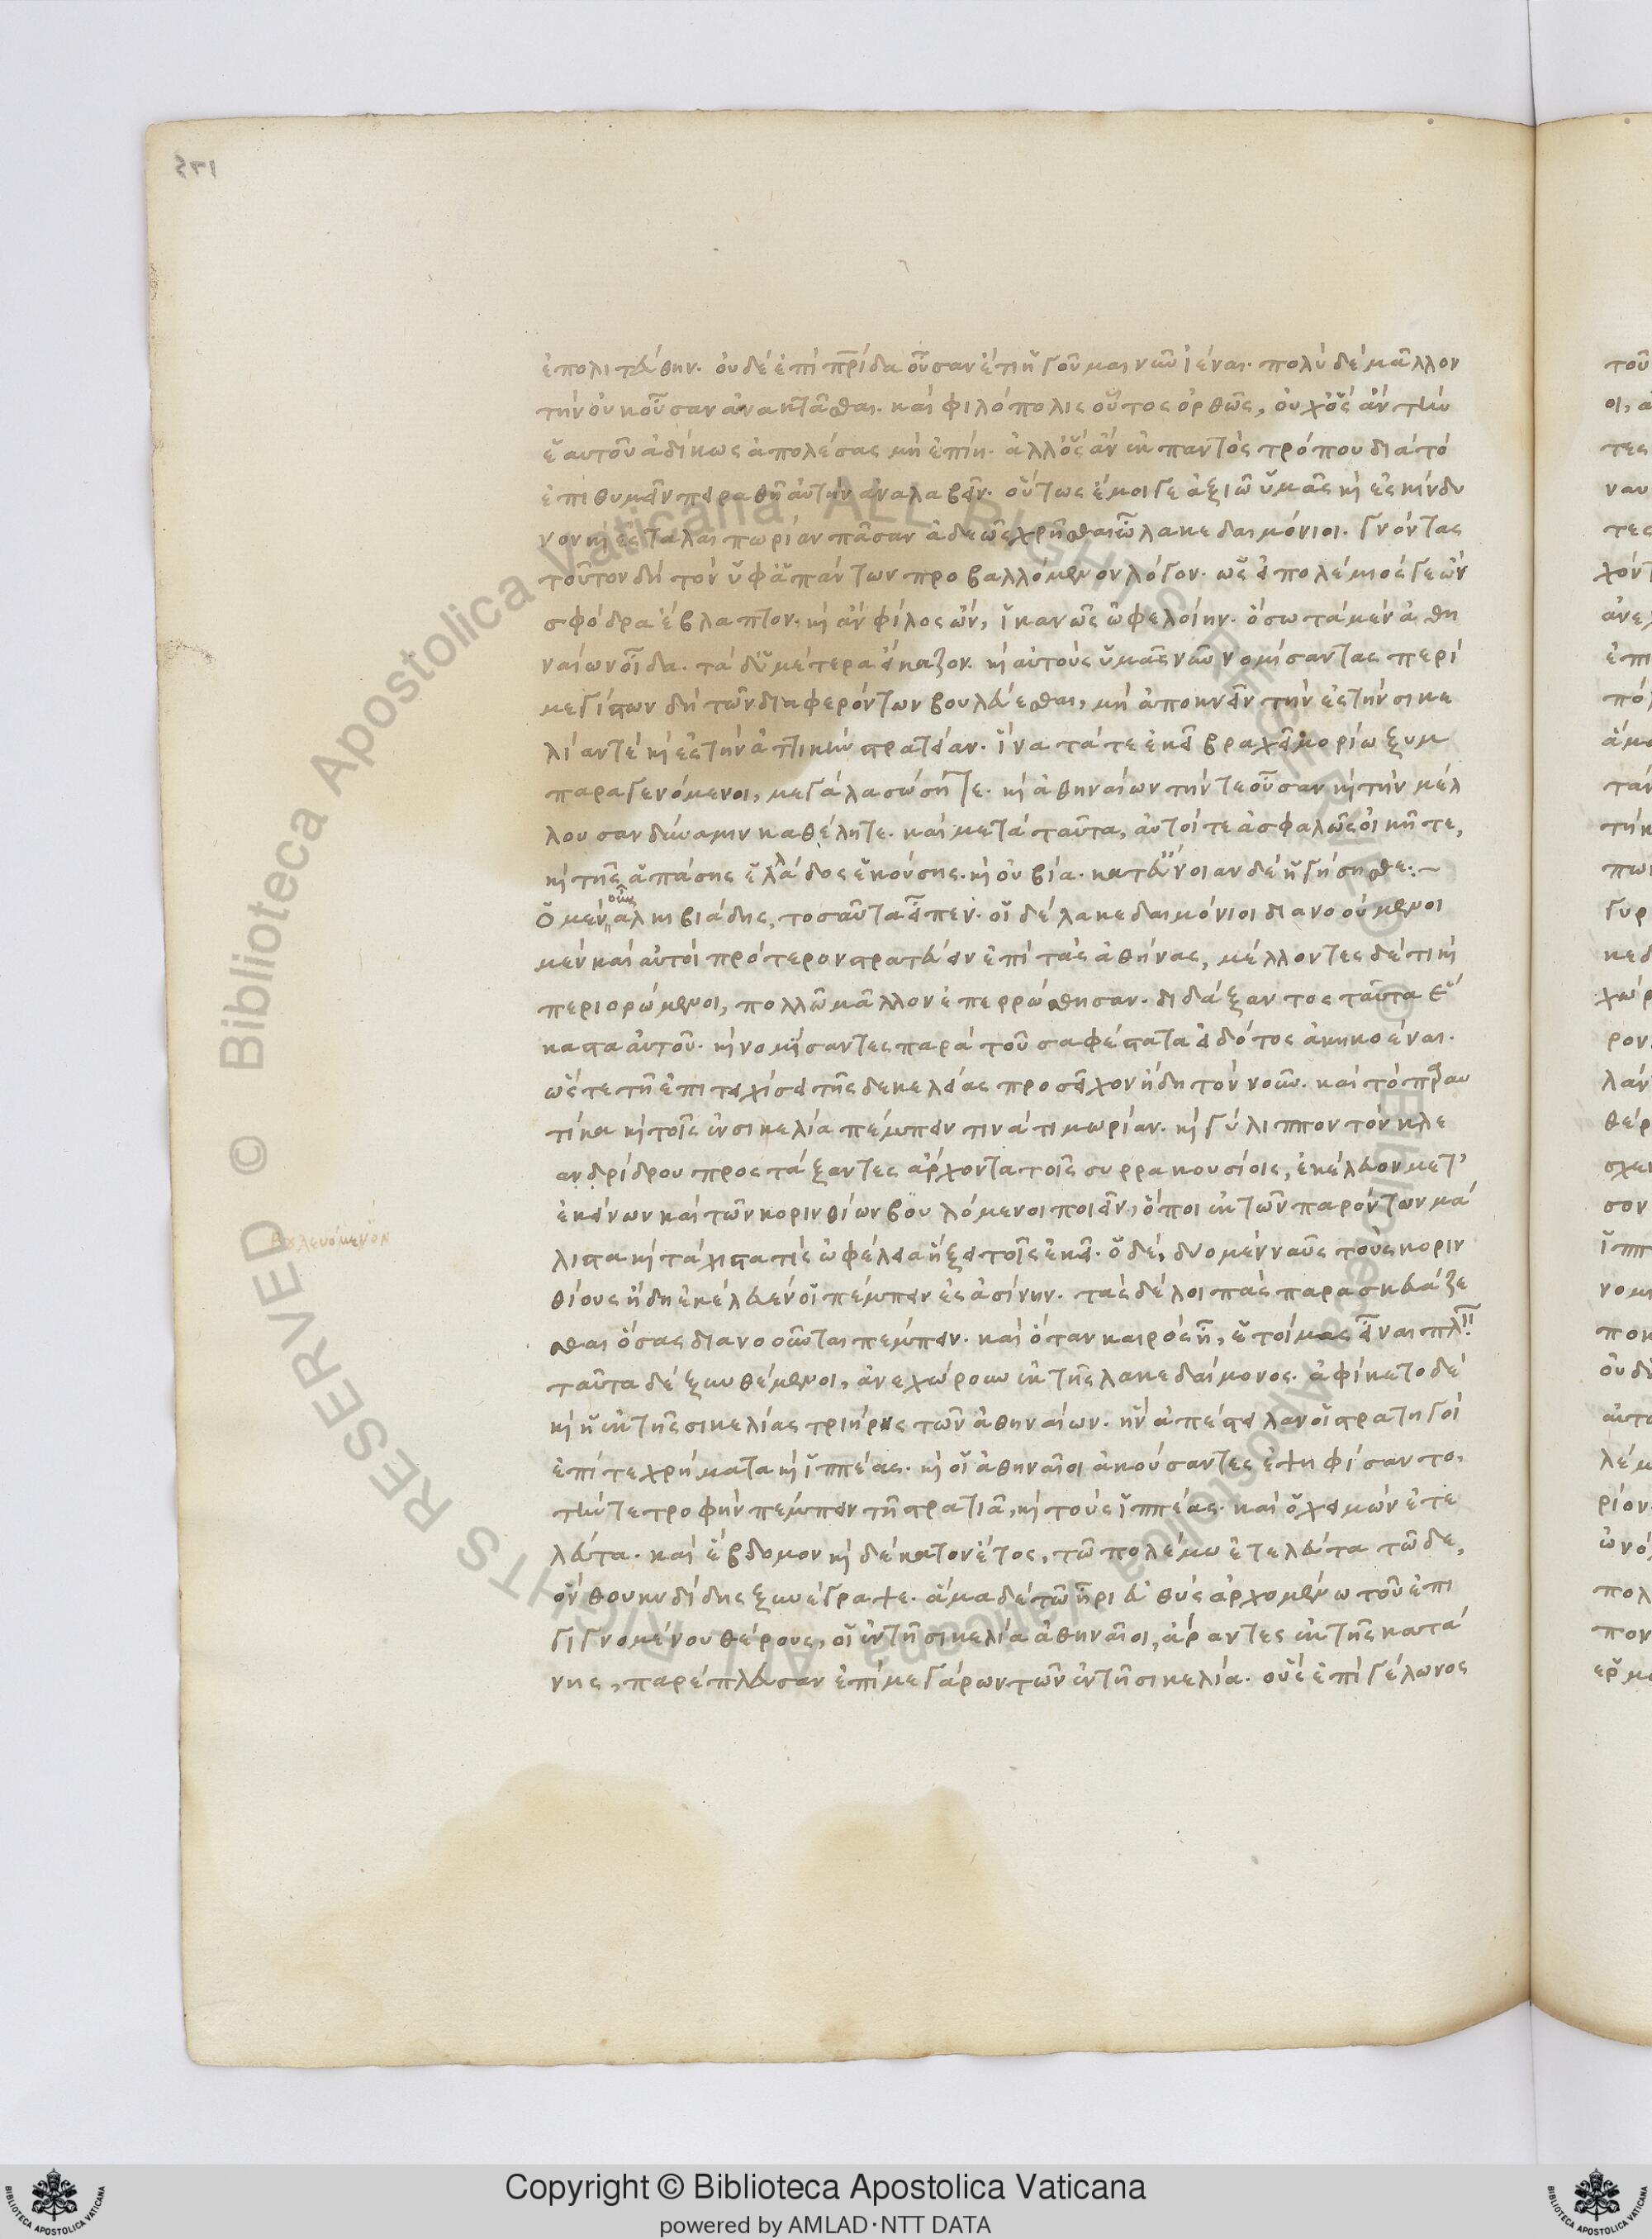 ἐπολιτεύθην. οὐδὲ ἐπὶ πρίδα οὖσαν ἔτι ἡγοῦμαι νῦν ἰέναι. πολὺ δὲ μᾶλλον
τὴν οὐκ οὖσαν ἀνακτᾶσθαι. καὶ φιλόπολις οὗτος ὀρθῶς, οὐχ ὃς ἂν τὴν
ἑαυτοῦ ἀδίκως ἀπολέσας μὴ ἐπίῃ. ἀλλ' ὃς ἂν ἐκ παντὸς τρόπου διὰ τὸ
ἐπιθυμεῖν πειραθῇ αὐτὴν ἀναλαβεῖν. οὕτως ἔμοιγε ἀξιῶ ὑμᾶς καὶ ἐς κίνδυ
νον καὶ ἐς ταλαιπωρίαν πᾶσαν ἀδεῶς χρῆσθαι ὦ λακεδαιμόνιοι. γνόντας
τοῦτον δὴ τὸν ὑφ' ἁπάντων προβαλλόμενον λόγον. ὡς εἰ πολέμιός γε ὢν
σφόδρα ἔβλαπτον. καὶ ἂν φίλος ὢν, ἱκανῶς ὠφελοίην. ὅσω τὰ μὲν ἀθη
ναίων οἶδα. τὰ δ' ὑμέτερα εἴκαζον. καὶ αὐτοὺς ὑμᾶς νῦν νομίσαντας περὶ
μεγίστων δὴ τῶν διαφερόντων βουλεύεσθαι, μὴ ἀποκνεῖν τὴν ἐς τὴν σικε
λίαν τὲ καὶ ἐς τὴν ἀττικὴν στρατείαν. ἵνα τά τε ἐκεῖ βραχεῖ μορίω ξυμ
παραγενόμενοι, μεγάλα σώσητε. καὶ ἀθηναίων τήν τε οὖσαν καὶ τὴν μέλ
λουσαν δύναμιν καθέλητε. καὶ μετὰ ταῦτα, αὐτοί τε ἀσφαλῶς οἰκῆτε,
καὶ τῆς ἁπάσης ἑλλάδος ἑκούσης. καὶ οὐ βία. κατ' εὔνοιαν δὲ ἡγήσησθε:~
Ὁ μὲν οὖν ἀλκιβιάδης, τοσαῦτα εἶπεν. οἱ δὲ λακεδαιμόνιοι διανοούμενοι
μὲν καὶ αὐτοὶ πρότερον στρατεύειν ἐπὶ τὰς ἀθήνας, μέλλοντες δέ τι καὶ
περιορώμενοι, πολλῶ μᾶλλον ἐπερρώσθησαν. διδάξαντος ταῦτα ἕ
καστα αὐτοῦ. καὶ νομίσαντες παρὰ τοῦ σαφέστατα εἰδότος ἀκηκοέναι.
ὥστε τῆ ἐπιτειχίσει τῆς δεκελείας προσεῖχον ἤδη τὸν νοῦν. καὶ τὸ πραυ
τίκα καὶ τοῖς ἐν σικελία πέμπειν τινὰ τιμωρίαν. καὶ γύλιππον τὸν κλε
ανδρίδρου προστάξαντες ἄρχοντα τοῖς συρρακουσίοις, ἐκέλευον μετ'
ἐκείνων καὶ τῶν κορινθίων βουλόμενοι ποιεῖν, ὅποι ἐκ τῶν παρόντων μά
λιστα καὶ τάχιστα τὶς ὠφέλεια ἥξει τοῖς ἐκεῖ. ὁ δὲ, δυο μὲν ναῦς τοὺς κοριν
θίους ἤδη ἐκέλευέν οἱ πέμπειν ἐς ἀσίνην. τὰς δὲ λοιπὰς παρασκευάζε
σθαι ὅσας διανοοῦνται πέμπειν. καὶ ὅταν καιρὸς ἦ, ἑτοίμας εἶναι πλ
ταῦτα δὲ ξυνθέμενοι, ἀνεχώρουν ἐκ τῆς λακεδαίμονος. ἀφίκετο δὲ
καὶ ἡ ἐκ τῆς σικελίας τριήρης τῶν ἀθηναίων. ἣν ἀπέστειλαν οἱ στρατηγοὶ
ἐπί τε χρήματα καὶ ἱππέας. καὶ οἱ ἀθηναῖοι ἀκούσαντες ἐψηφίσαντο,
τήν τε τροφὴν πέμπειν τῆ στρατιᾶ, καὶ τοὺς ἱππέας. καὶ ὁ χειμὼν ἐτε
λεύτα. καὶ ἕβδομον καὶ δέκατον ἔτος, τῶ πολέμω ἐτελεύτα τῶδε,
ὃν θουκυδίδης ξυνέγραψε. ἅμα δὲ τῶ ἦρι εὐθὺς ἀρχομένω τοῦ ἐπι
γιγνομένου θέρους, οἱ ἐν τῆ σικελία ἀθηναῖοι, ἄραντες ἐκ τῆς κατά
νης, παρέπλευσαν ἐπὶ μεγάρων τῶν ἐν τῆ σικελία. οὓς ἐπὶ γέλωνος
© Biblioteca Apostolica Vaticana ALL RIGHTS RESERVED
Copyright © Biblioteca Apostolica Vaticana
powered by AMLAD·NTT DATA